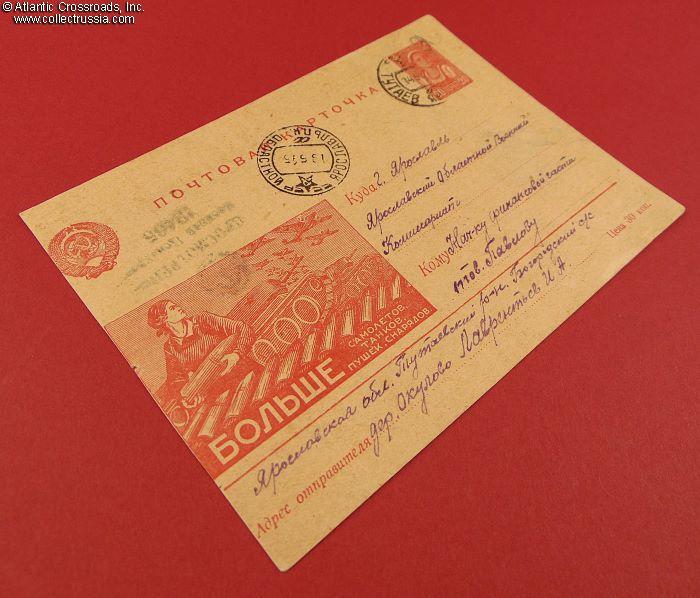 © Atlantic Crossroads, Inc.
www.collectrussia.com
ПОЧТОВАЯ КАРТОЧКА
ТУТАЕВ
ЯРОСЛАВЛЬ
ПРОСМОТРЕНО
Военной Цензурой
13495
Куда г. Ярославль
Ярославский Областной Военный
Комиссариат
Кому Нач-ку финансовой части
тов. Павлову
Цена 30 коп.
БОЛЬШЕ
САМОЛЕТОВ
ТАНКОВ,
ПУШЕК, СНАРЯДОВ
Ярославская обл. Тутаевский р-н. Богородский с/с
Адрес отправителя дер. Окулово Лаврентьев И. А